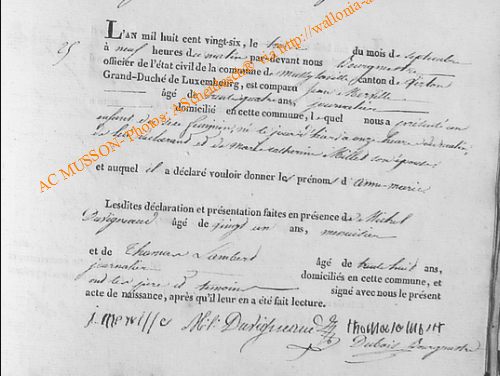 25
L'an mil huit cent vingt-six, le du mois de septembre
à neuf heures du matin par-devant nous Bourgmestre
officier de l'état civil de la commune de canton de Virton
Grand-Duché de Luxembourg, est comparu jean Merville
âgé de trente quatre ans, journalier
domicilié en cette commune, lequel nous a présenté un
enfant du sexe féminin, né le jour d'hier à onze heures du matin,
de lui déclarant et de marie catherine Millet son épouse
et auquel il a déclaré vouloir donner les prénoms d'anne marie
Lesdites déclaration et présentation faites en présence de Michel
Duvigneaud âgé de vingt un ans, menuisier
et de Thomas Lambert âgé de trente huit ans,
journalier domiciliés en cette commune, et
ont les père et témoins signé avec nous le présent
acte de naissance, après qu'il leur en a été fait lecture.
j. merville Duvigneaud thomas lambert
Dubois Bourgmestre
AC MUSSON- Photos: via http://wallonia-